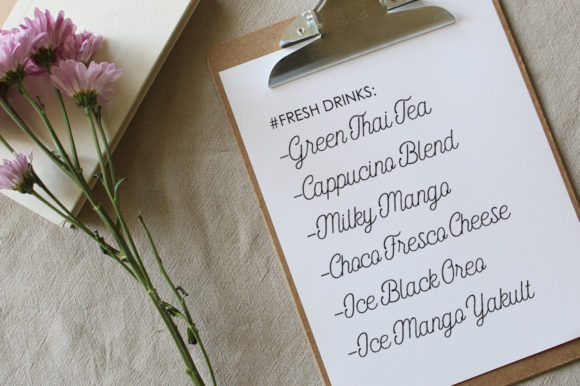 #FRESH DRINKS:
-Green Thai Tea
-Cappucino Blend
-Milky Mango
-Choco Fresco Cheese
-Ice Black Oreo
-Ice Mango Yakult